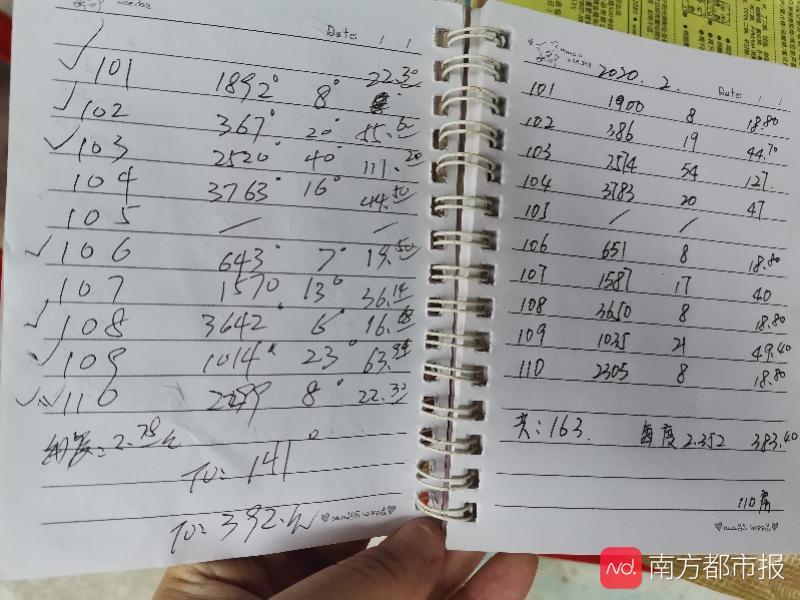 Date:
101 1892° 8° 22.30
102 367° 20° 55.6
103 2520° 40° 111.20
104 3763° 16° 44.50
105 / /
106 643° 7° 19.50
107 1570 13° 36.14
108 3642° 6° 16.68
109 1014° 23° 63.94
110 2299 8° 22.30
每度=2.78元
TO: 141°
TO: 392.元
2020. 2.
Date:
101 1900 8 18.80
102 386 19 44.70
103 2574 54 127.
104 3783 20 47
105 / /
106 651 8 18.80
107 1587 17 40
108 3650 8 18.80
109 1035 21 49.40
110 2305 8 18.80
共:163. 每度2.352 383.40
nd. 南方都市报